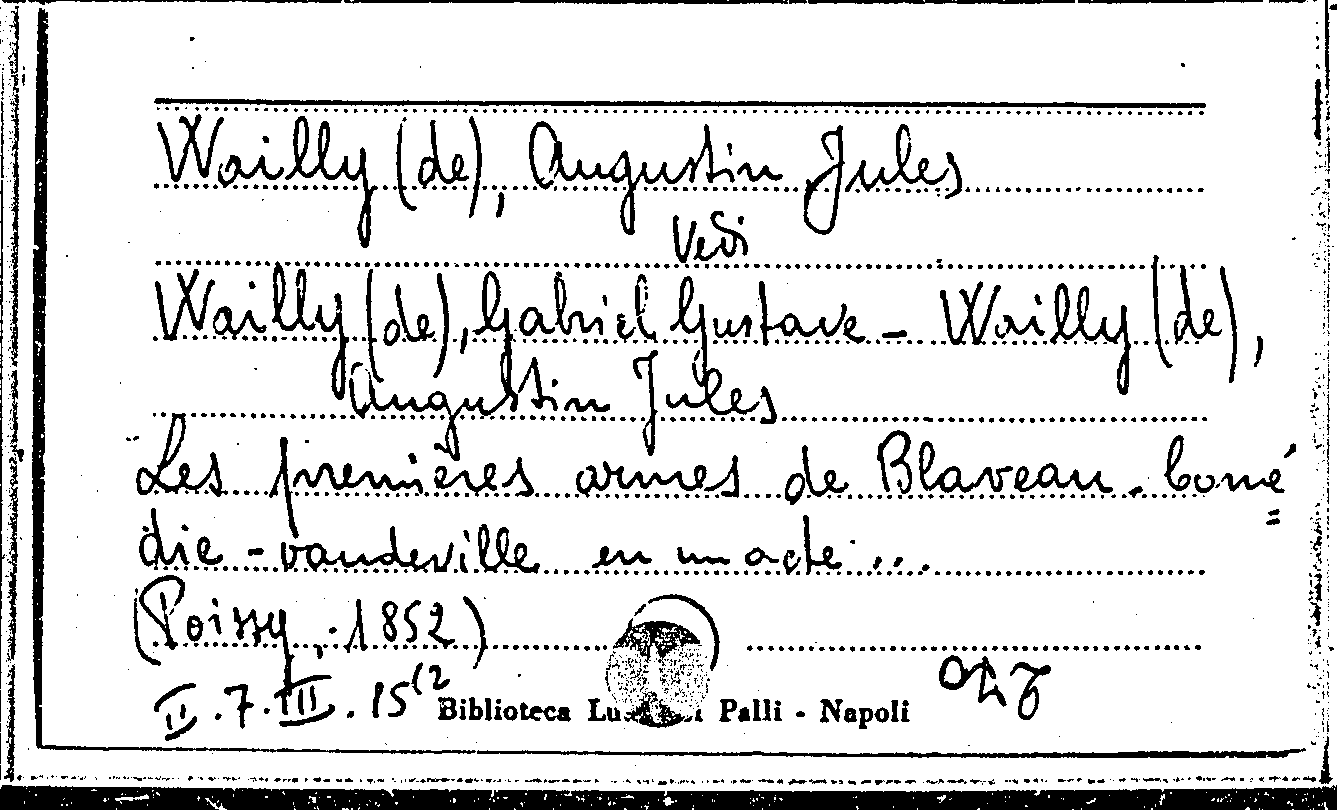 Wailly (de), Augustin Jules
Vedi
Wailly (de), Gabriel Gustave - Wailly (de),
Augustin Jules
Les premières armes de Blaveau. Comé=
die-vaudeville en un acte...
(Poissy, 1852)
II.7.III.15(2
Biblioteca Palli - Napoli